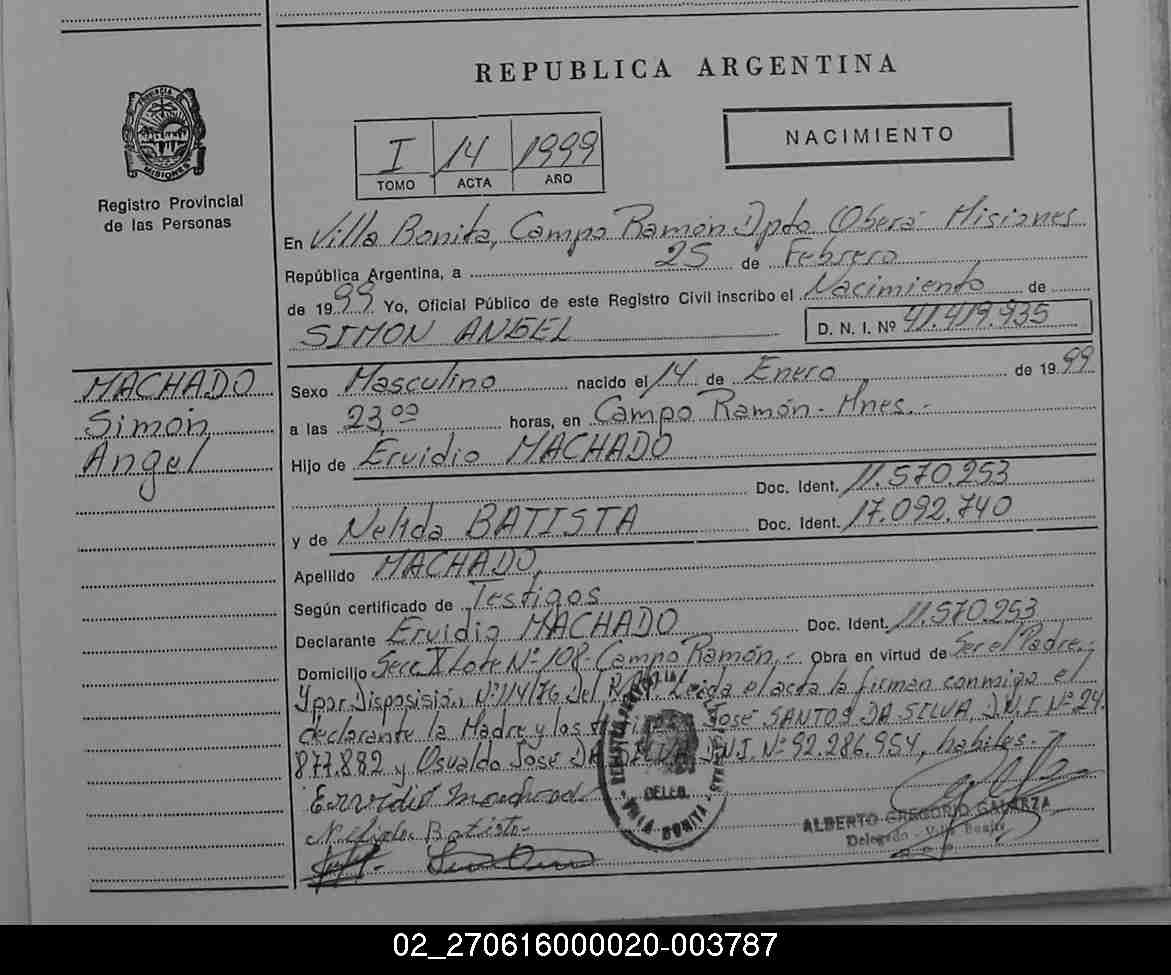 REPUBLICA ARGENTINA
PROVINCIA DE MISIONES
Registro Provincial
de las Personas
I 14 1999
TOMO ACTA AÑO
NACIMIENTO
En Villa Bonita, Campo Ramón Dpto Oberá Misiones
República Argentina, a 25 de Febrero
de 1999 Yo, Oficial Público de este Registro Civil inscribo el Nacimiento de
SIMON ANGEL D. N. I. Nº 41.419.935
MACHADO
Simón
Angel
Sexo Masculino nacido el 14 de Enero de 1999
a las 23,00 horas, en Campo Ramón - Mnes.-
Hijo de Ervidio MACHADO
Doc. Ident. 11.570.253
y de Nelida BATISTA Doc. Ident. 17.092.740
Apellido MACHADO,
Según certificado de Testigos
Declarante Ervidio MACHADO Doc. Ident. 11.570.253
Domicilio Secc. X Lote Nº 108 - Campo Ramón,- Obra en virtud de Ser el Padre,-
Y por Disposisión Nº 114/76 Del Leida el acta la firman conmigo el
declarante la Madre y los José SANTOS DA SILVA, D.N.I. Nº 24.
877.882 y Osvaldo José DA SILVA D.N.I. Nº 92.286.954, habiles.-
Batista
VILLA BONITA
ALBERTO GREGORIO GALARZA
Delegado - Villa Bonita
02_270616000020-003787